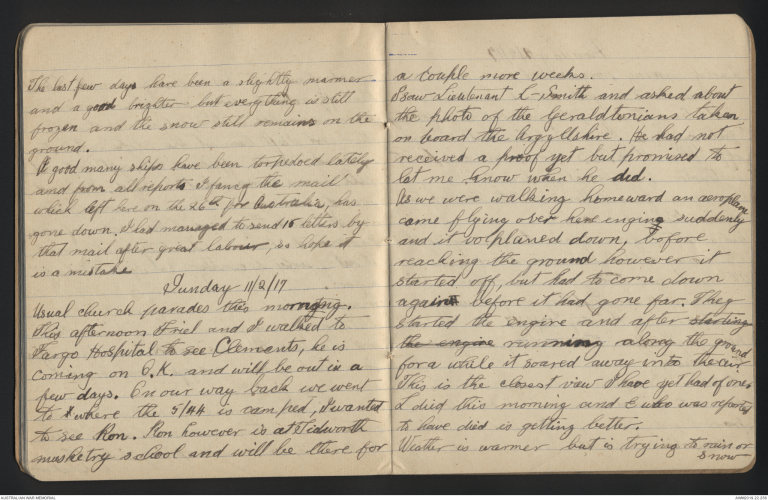 The last few days have been a slightly warmer
and a good brighter but everything is still
frozen and the snow still remains on the
ground.
A good many ships have been torpedoed lately
and from all reports I fancy the mail
which left here on the 26th for Australia, has
gone down, I had managed to send 15 letters by
that mail after great labour, so hope it
is a mistake
Sunday 11/2/17
Usual church parades this morning.
This afternoon Friel and I walked to
Fargo Hospital to see Clements, he is
coming on O.K. and will be out in a
few days. On our way back we went
to where the 5/44 is camped, I wanted
to see Ron. Ron however is at Tidworth
musketry school and will be there for
a couple more weeks.
I saw Lieutenant C Smith and asked about
the photo of the Geraldtonians taken
on board the Argyllshire. He had not
received a proof yet but promised to
let me know when he did.
As we were walking homeward an aeroplane
came flying over here enging suddenly
and it volplaned down, before
reaching the ground however it
started off, but had to come down
again before it had gone far. They
started the engine and after starting
the engine running along the ground
for a while it soared away into the air
This is the closest view I have yet had of one.
L died this morning and E who was reported
to have died is getting better.
Weather is warmer but is trying to rain or
snow
AUSTRALIAN WAR MEMORIAL